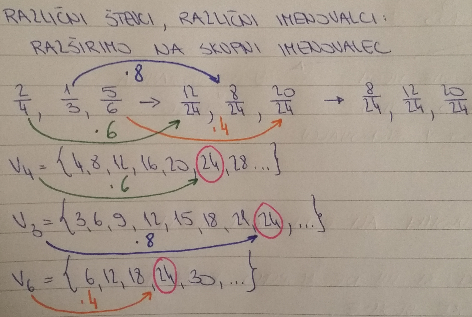 RAZLIČNI ŠTEVCI, RAZLIČNI IMENOVALCI:
RAZŠIRIMO NA SKUPNI IMENOVALEC
·8
2/4, 1/3, 5/6 → 12/24, 8/24, 20/24 → 8/24, 12/24, 20/24
·6 ·4
V4 = {4,8,12,16,20,24,28...}
·6
V3 = {3,6,9,12,15,18,21,24,...}
·8
V6 = {6,12,18,24,30,...}
·4